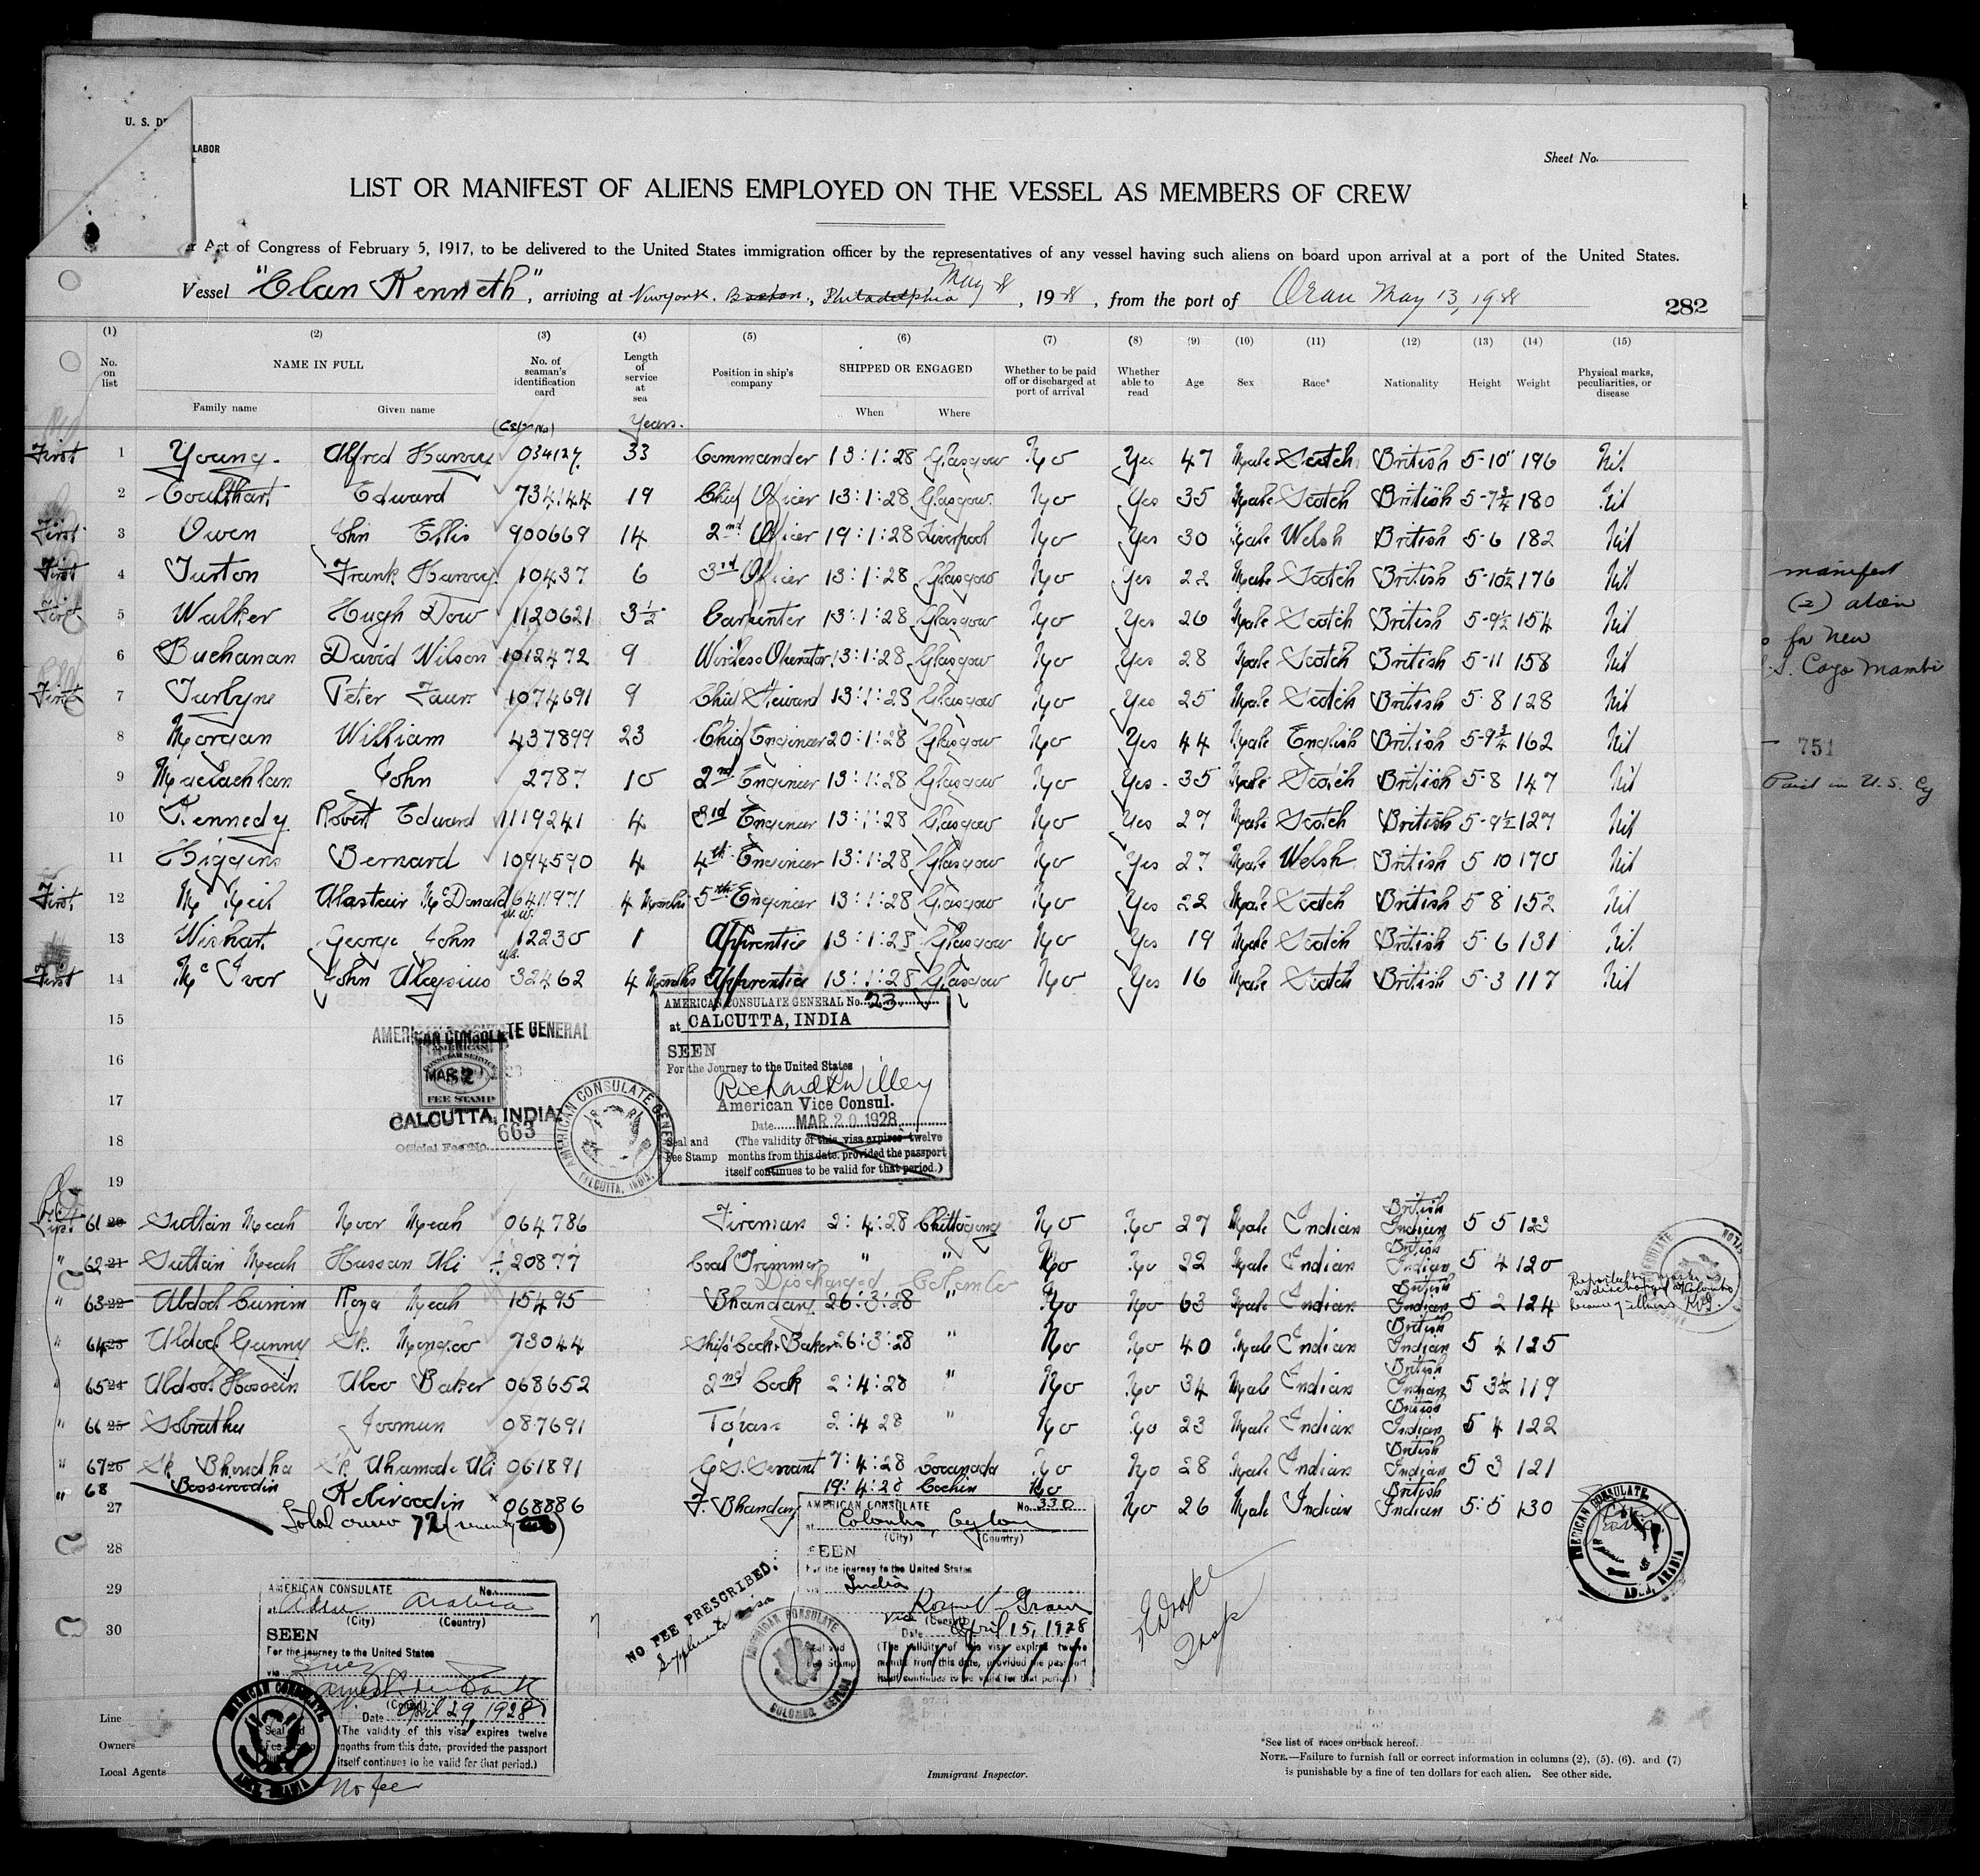 U. S. DE
LABOR
Sheet No.
LIST OR MANIFEST OF ALIENS EMPLOYED ON THE VESSEL AS MEMBERS OF CREW
Act of Congress of February 5, 1917, to be delivered to the United States immigration officer by the representatives of any vessel having such aliens on board upon arrival at a port of the United States.
Vessel "Clan Kenneth", arriving at New York. Boston, Philadelphia May 28, 1928, from the port of Oran May 13, 1928
282
(1) (2) (3) (4) (5) (6) (7) (8) (9) (10) (11) (12) (13) (14) (15)
No. on list NAME IN FULL No. of seaman's identification card Length of service at sea Position in ship's company SHIPPED OR ENGAGED Whether to be paid off or discharged at port of arrival Whether able to read Age Sex Race* Nationality Height Weight Physical marks, peculiarities, or disease
Family name Given name When Where
Years.
First 1 Young. Alfred Harvey 034127 33 Commander 13:1:28 Glasgow No Yes 47 Male Scotch British 5-10" 196 Nil
2 Coulthart Edward 734144 19 Chief Officer 13:1:28 Glasgow No Yes 35 Male Scotch British 5-7¾ 180 Nil
First 3 Owen John Ellis 900669 14 2nd Officer 19:1:28 Liverpool No Yes 30 Male Welsh British 5-6 182 Nil
First 4 Turton Frank Harvey 10437 6 3rd Officer 13:1:28 Glasgow No Yes 22 Male Scotch British 5-10½ 176 Nil
First 5 Walker Hugh Dow 1120621 3½ Carpenter 13:1:28 Glasgow No Yes 26 Male Scotch British 5-9½ 154 Nil
6 Buchanan David Wilson 1012472 9 Wireless Operator 13:1:28 Glasgow No Yes 28 Male Scotch British 5-11 158 Nil
First 7 Turlyne Peter 1074691 9 Chief Steward 13:1:28 Glasgow No Yes 25 Male Scotch British 5 8 128 Nil
8 Morgan William 437899 23 Chief Engineer 20:1:28 Glasgow No Yes 44 Male English British 5-9¾ 162 Nil
9 Maclachlan John 2787 10 2nd Engineer 13:1:28 Glasgow No Yes 35 Male Scotch British 5-8 147 Nil
10 Kennedy Robert Edward 1119241 4 3rd Engineer 13:1:28 Glasgow No Yes 27 Male Scotch British 5-9½ 127 Nil
11 Higgins Bernard 1094590 4 4th Engineer 13:1:28 Glasgow No Yes 27 Male Welsh British 5 10 170 Nil
First 12 Mc Neil Alastair McDonald 4 Months 5th Engineer 13:1:28 Glasgow No Yes 22 Male Scotch British 5 8 152 Nil
13 Wishart George John 12230 1 Apprentice 13:1:28 Glasgow No Yes 19 Male Scotch British 5.6 131 Nil
First 14 Mc Ivor John Aloysius 32462 4 Months Apprentice 13:1:28 Glasgow No Yes 16 Male Scotch British 5-3 117 Nil
15
16
17
18
19
AMERICAN CONSULATE GENERAL
AMERICAN CONSULAR SERVICE
MAR 2
FEE STAMP
CALCUTTA, INDIA.
Official Fee No. 663
AMERICAN CONSULATE GENERAL CALCUTTA, INDIA.
AMERICAN CONSULATE GENERAL No. 23
at CALCUTTA, INDIA
SEEN
For the Journey to the United States
Richard R Willey
American Vice Consul.
Date MAR 20 1928
Seal and Fee Stamp (The validity of this visa expires twelve months from this date, provided the passport itself continues to be valid for that period.)
First 61 20 Sultan Meah Noor Meah 064786 Fireman 2:4:28 Chittagong No No 27 Male Indian British Indian 5 5 123
" 62 21 Sultan Meah Hassan Ali 20877 Coal Trimmer " " No No 22 Male Indian British Indian 5 4 120
Discharged Colombo
" 63 22 Abdool Currim Roza Meah 15495 Bhandary 26:3:28 " No No 63 Male Indian British Indian 5 2 124
" 64 23 Abdool Gunny Sk. 73044 Ship's Cook & Baker 26:3:28 " No No 40 Male Indian British Indian 5 4 125
" 65 24 Abdool Hossein Aboo Baker 068652 2nd Cook 2:4:28 " No No 34 Male Indian British Indian 5 3½ 119
" 66 25 Sobrathu Joomun 087691 Topass 2:4 28 " No No 23 Male Indian British Indian 5 4 122
" 67 26 Sk. Bhondha Sk. Ahamade Ali 061891 G.S. Servant 7:4:28 Cocanada No No 28 Male Indian British Indian 5 3 121
" 68 27 Bassirooddin Kabirooddin 068886 F. Bhandary 19:4:28 Cochin No No 26 Male Indian British Indian 5:5 130
Total crew 72 (seventy two)
28
29
30
AMERICAN CONSULATE No. 330
at Colombo, Ceylon
(City) (Country)
SEEN
For the journey to the United States
via India
Vice (Consul)
Date April 15, 1928
Seal and Fee Stamp (The validity of this visa expires twelve months from this date, provided the passport itself continues to be valid for that period.)
NO FEE PRESCRIBED:
Supplemental visa
AMERICAN CONSULATE COLOMBO, CEYLON
AMERICAN CONSULATE ADEN, ARABIA
AMERICAN CONSULATE No.
at Aden Arabia
(City) (Country)
SEEN
For the journey to the United States
via Suez
(Consul)
Date April 29, 1928
(The validity of this visa expires twelve months from this date, provided the passport itself continues to be valid for that period.)
AMERICAN CONSULATE ADEN, ARABIA
No fee
Line
Owners
Local Agents
Immigrant Inspector.
*See list of races on back hereof.
NOTE.—Failure to furnish full or correct information in columns (2), (5), (6), and (7)
is punishable by a fine of ten dollars for each alien. See other side.
manifest
(2) alien
for New
S. Cayo Mambi
751
Paid in U.S. Cy